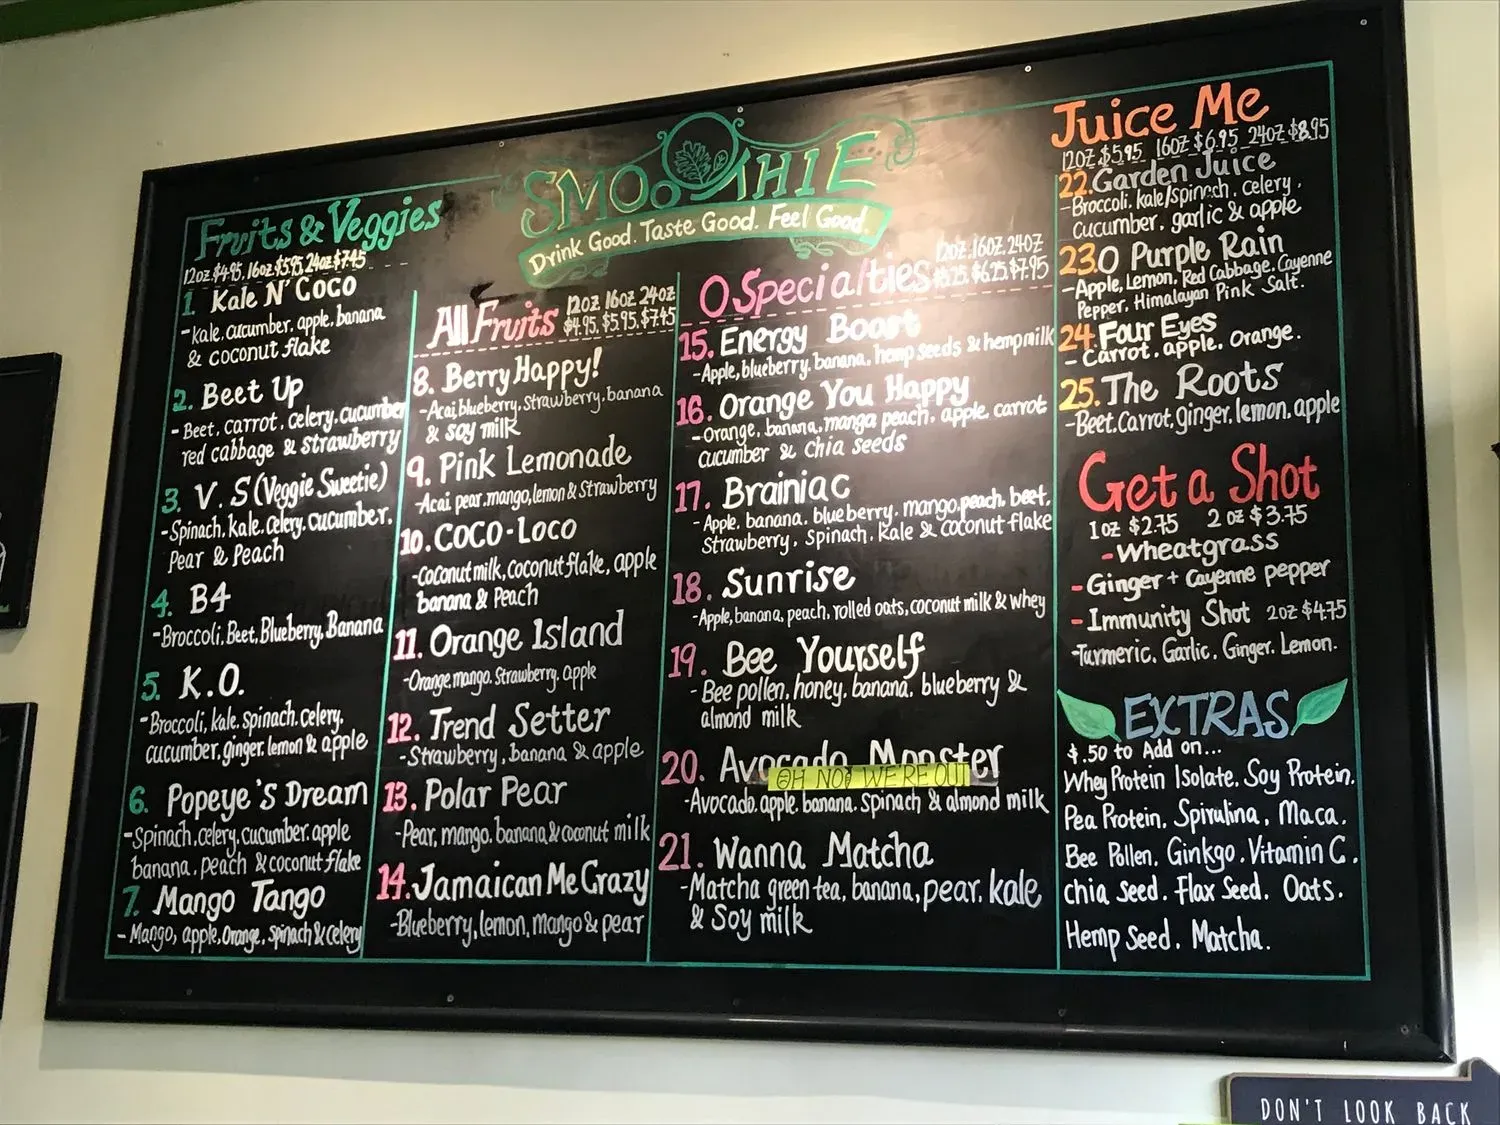 SMOOTHIE
Drink Good. Taste Good. Feel Good.
Fruits & Veggies
12oz $4.95, 16oz $5.95 24oz $7.45
1. Kale N' Coco
-Kale, cucumber, apple, banana
& coconut flake
2. Beet Up
- Beet, carrot, celery, cucumber
red cabbage & strawberry
3. V.S (Veggie Sweetie)
-Spinach, kale, celery, cucumber,
Pear & Peach
4. B4
-Broccoli, Beet, Blueberry, Banana
5. K.O.
-Broccoli, kale, spinach, celery,
cucumber, ginger, lemon & apple
6. Popeye's Dream
-Spinach, celery, cucumber, apple
banana, peach & coconut flake
7. Mango Tango
- Mango, apple, orange, spinach & celery
All Fruits 12oz 16oz 24oz
$4.95, $5.95, $7.45
8. Berry Happy!
-Acai, blueberry, strawberry, banana
& soy milk
9. Pink Lemonade
-Acai, pear, mango, lemon & Strawberry
10. COCO-LOCO
-Coconut milk, coconut flake, apple
banana & Peach
11. Orange Island
-Orange, mango, Strawberry, apple
12. Trend Setter
-Strawberry, banana & apple
13. Polar Pear
-Pear, mango, banana & coconut milk
14. Jamaican Me Crazy
-Blueberry, lemon, mango & pear
O Specialties 12oz. 16oz. 24oz
$5.25 $6.25 $7.95
15. Energy Boost
-Apple, blueberry, banana, hemp seeds & hempmilk
16. Orange You Happy
-Orange, banana, manga peach, apple, carrot
cucumber & chia seeds
17. Brainiac
-Apple, banana, blueberry, mango, peach, beet,
Strawberry, spinach, kale & coconut flake
18. Sunrise
-Apple, banana, peach, rolled oats, coconut milk & whey
19. Bee Yourself
- Bee pollen, honey, banana, blueberry &
almond milk
20. Avocado Monster
OH NO! WE'RE OUT
-Avocado, apple, banana, spinach & almond milk
21. Wanna Matcha
-Matcha green tea, banana, pear, kale
& Soy milk
Juice Me
12oz $5.95 16oz $6.95 24oz $8.95
22. Garden Juice
-Broccoli, kale/spinach, celery,
cucumber, garlic & apple
23. O Purple Rain
-Apple, Lemon, Red Cabbage, Cayenne
Pepper, Himalayan Pink Salt.
24. Four Eyes
- Carrot, apple, Orange.
25. The Roots
-Beet, Carrot, ginger, lemon, apple
Get a Shot
1oz $2.75 2oz $3.75
-Wheatgrass
-Ginger + Cayenne pepper
-Immunity Shot 2oz $4.75
-Turmeric, Garlic, Ginger, Lemon.
EXTRAS
$.50 to Add on...
Whey Protein Isolate, Soy Protein,
Pea Protein, Spirulina, Maca,
Bee Pollen, Ginkgo, Vitamin C,
chia Seed, Flax Seed, Oats,
Hemp Seed, Matcha.
DON'T LOOK BACK